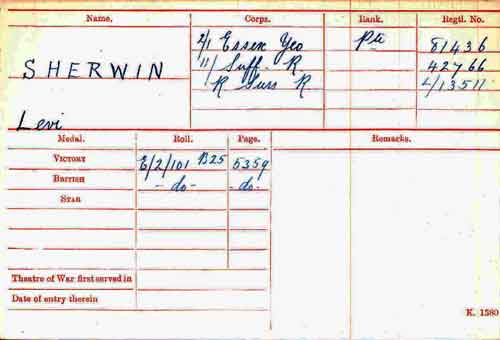 Name. Corps. Rank. Regtl. No.
2/1 Essex Yeo Pte 81436
SHERWIN 11/ Suff. R 42766
R Suss R L/13511
Levi
Medal. Roll. Page. Remarks.
VICTORY E/2/101 B25 5359
BRITISH -do- -do-
STAR
Theatre of War first served in
Date of entry therein
K. 1380